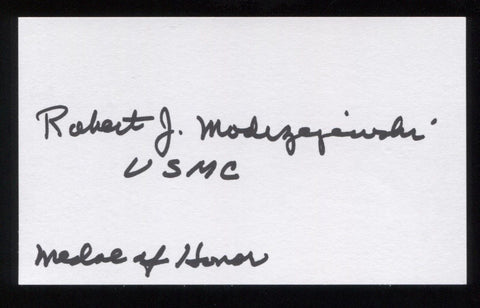 Robert J. Modrzejewski
USMC
Medal of Honor